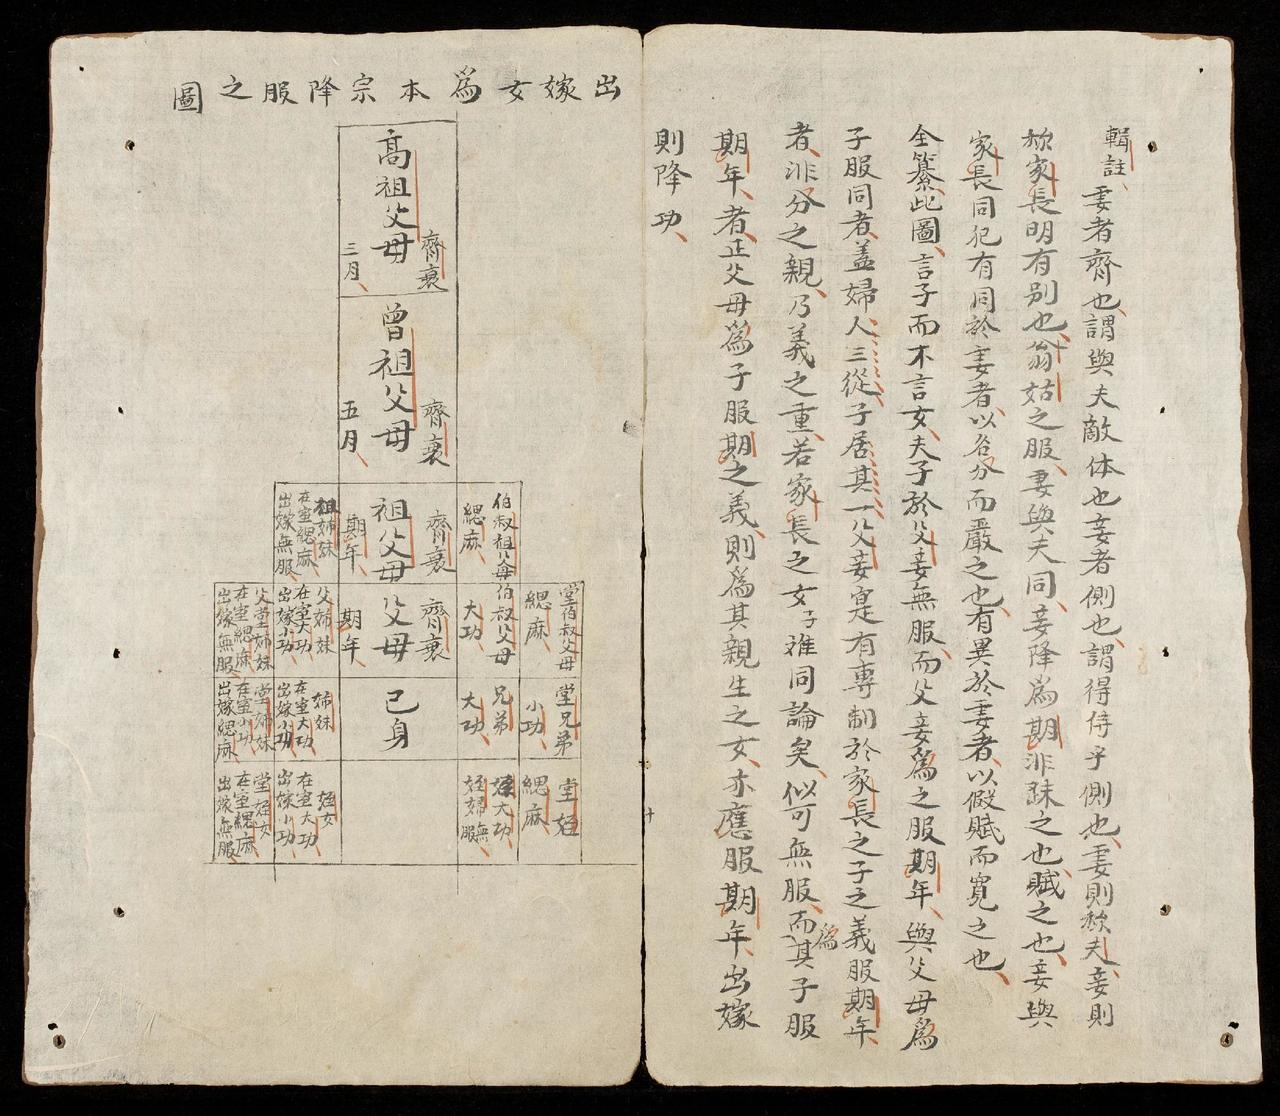 輯註妻者齊也謂與夫敵体也妾者側也謂得侍乎側也妻則称夫妾則
称家長明有别也翁姑之服妻與夫同妾降為期非踈之也賦之也妾與
家長同犯有同於妻者以名分而嚴之也有異於妻者以假賦而寬之也
全纂此圖言子而不言女夫子於父妾無服而父妾為之服期年與父母為
子服同者盖婦人三從子居其一父妾寔有專制於家長之子之義服期年
者非分之親乃義之重若家長之女子难同論矣似可無服而其子為服
期年者正父母為子服期之義則為其親生之女亦應服期年出嫁
則降功
出嫁女為本宗降服之圖
高祖父母 齊衰三月
曾祖父母 齊衰五月
伯叔祖父母 緦麻
祖父母 齊衰期年
祖姉妹 在室緦麻 出嫁無服
堂伯叔父母 緦麻
伯叔父母 大功
父母 齊衰期年
父姉妹 在室大功 出嫁小功
父堂姉妹 在室緦麻 出嫁無服
堂兄弟 小功
兄弟 大功
己身
姉妹 在室大功 出嫁小功
堂姉妹 在室小功 出嫁緦麻
堂姪 緦麻
姪大功 姪婦無服
姪女 在室大功 出嫁小功
堂姪女 在室緦麻 出嫁無服
十